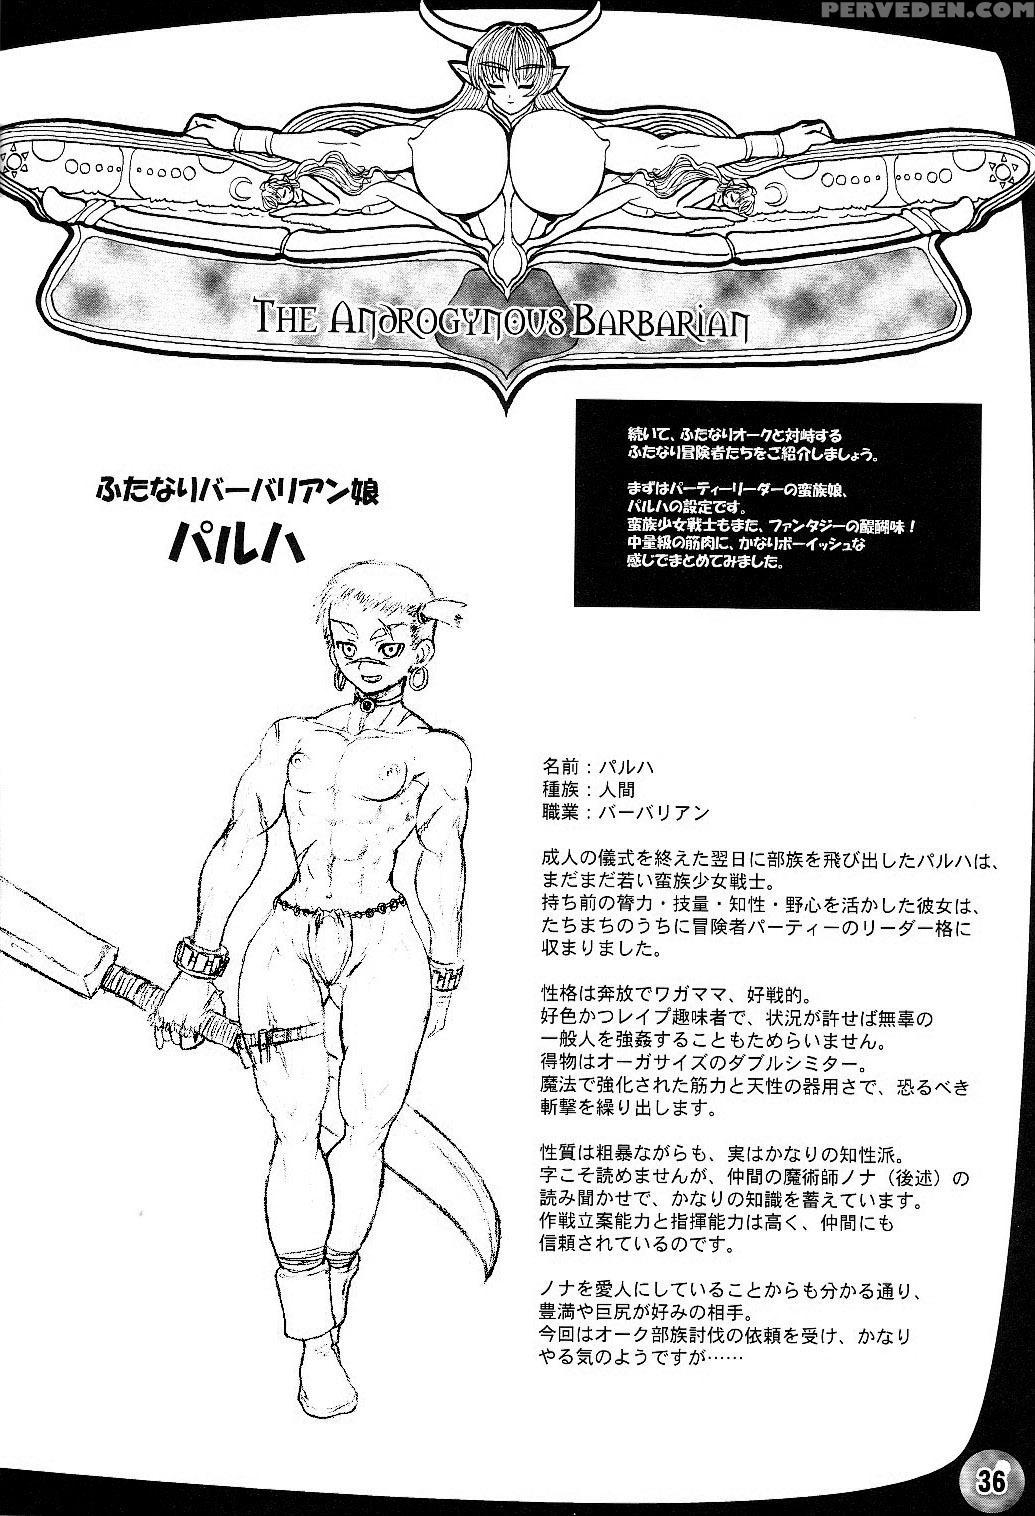 PERVEDEN.COM
THE ANDROGYNOUS BARBARIAN
続いて、ふたなりオークと対峙する
ふたなり冒険者たちをご紹介しましょう。
まずはパーティーリーダーの蛮族娘、
パルハの設定です。
蛮族少女戦士もまた、ファンタジーの醍醐味！
中量級の筋肉に、かなりボーイッシュな
感じでまとめてみました。
ふたなりバーバリアン娘
パルハ
名前：パルハ
種族：人間
職業：バーバリアン
成人の儀式を終えた翌日に部族を飛び出したパルハは、
まだまだ若い蛮族少女戦士。
持ち前の膂力・技量・知性・野心を活かした彼女は、
たちまちのうちに冒険者パーティーのリーダー格に
収まりました。
性格は奔放でワガママ、好戦的。
好色かつレイプ趣味者で、状況が許せば無辜の
一般人を強姦することもためらいません。
得物はオーガサイズのダブルシミター。
魔法で強化された筋力と天性の器用さで、恐るべき
斬撃を繰り出します。
性質は粗暴ながらも、実はかなりの知性派。
字こそ読めませんが、仲間の魔術師ノナ（後述）の
読み聞かせで、かなりの知識を蓄えています。
作戦立案能力と指揮能力は高く、仲間にも
信頼されているのです。
ノナを愛人にしていることからも分かる通り、
豊満や巨尻が好みの相手。
今回はオーク部族討伐の依頼を受け、かなり
やる気のようですが……
36